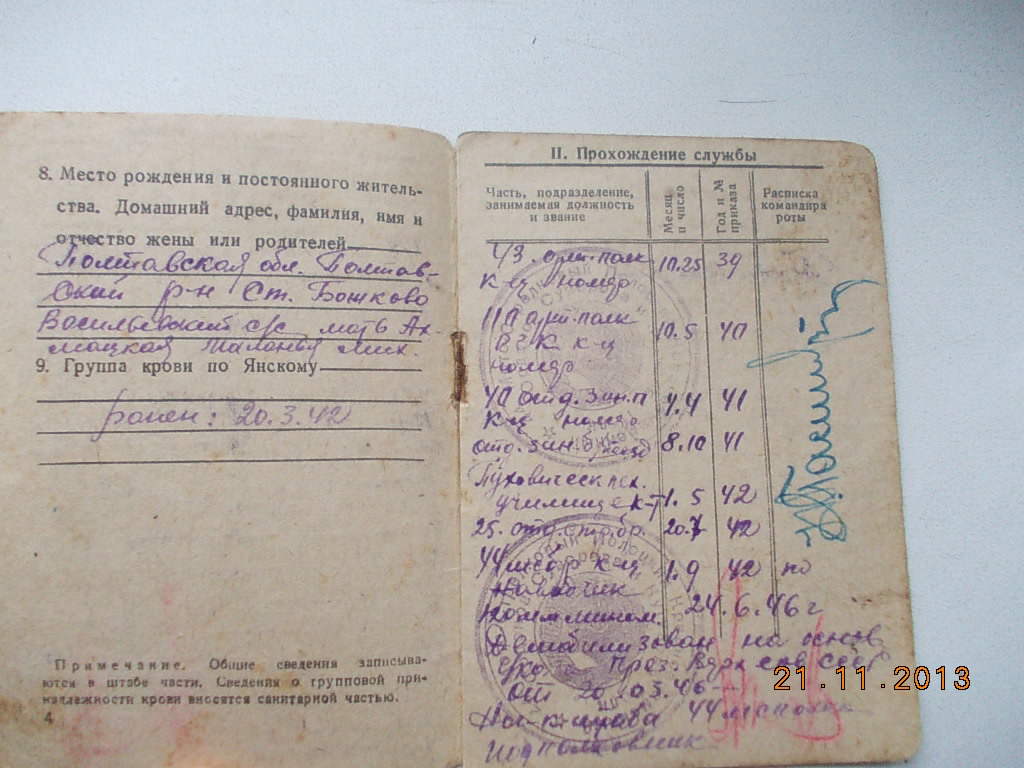 8. Место рождения и постоянного житель-
ства. Домашний адрес, фамилия, имя и
отчество жены или родителей
Полтавская обл. Полтав-
ский р-н Ст. Божково
Васильевский с/с мать
Мих.
9. Группа крови по Янскому
ранен: 20.3.42
Примечание. Общие сведения записыва-
ются в штабе части. Сведения о групповой при-
надлежности крови вносятся санитарной частью.
4
II. Прохождение службы
Часть, подразделение,
занимаемая должность
и звание
Месяц
и число
Год и №
приказа
Расписка
командира
роты
43. арт. полк 10.25 39
к-ц номер
110 арт. полк 10.5 40
к-ц
номер
40 отд. зен. п 4.4 41
к-ц номер
отд. зен. 8.10 41
Пуховическ пех.
училище к-т 1.5 42
25. отд. стр. бр. 20.7 42
44 к-ц 1.9 42 по
24.6.46 г
Демобилизован на основ
Указа През. Верх Сов СССР
от 20.03.46
Нач-к штаба 44
подполковник
21.11.2013